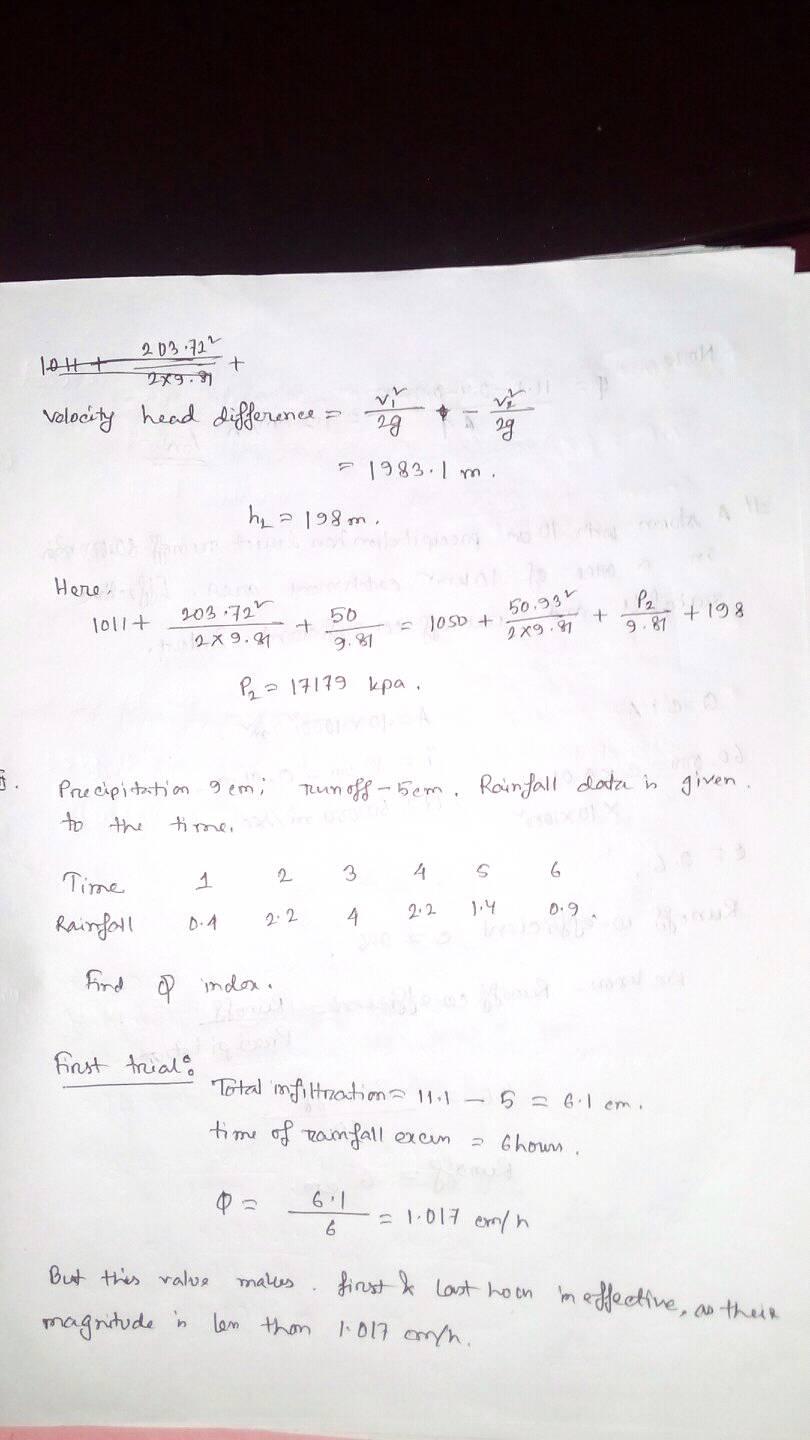 1011 + 203.72² / 2×9.81 +
Velocity head difference = v₁²/2g - v₂²/2g
= 1983.1 m.
hL = 198 m.
Here,
1011 + 203.72² / 2×9.81 + 50/9.81 = 1050 + 50.93² / 2×9.81 + P₂/9.81 + 198
P₂ = 17179 kpa.
Precipitation 9 cm; runoff - 5cm. Rainfall data is given
to the time.
Time 1 2 3 4 5 6
Rainfall 0.4 2.2 4 2.2 1.4 0.9.
Find φ index.
First trial:
Total infiltration = 11.1 - 5 = 6.1 cm.
time of rainfall excess = 6 hours.
φ = 6.1/6 = 1.017 cm/h
But this value makes. first & last hour ineffective, as their
magnitude is less than 1.017 cm/h.